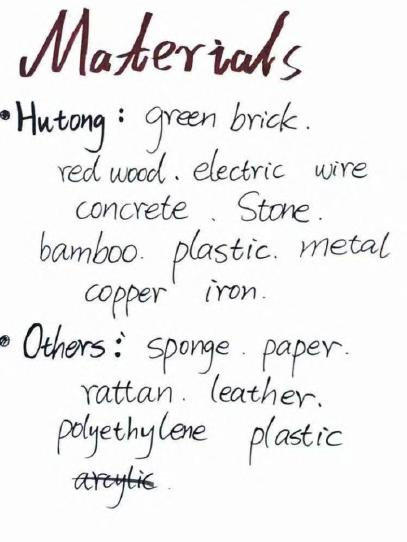 Materials
• Hutong: green brick.
red wood. electric wire
concrete. Stone.
bamboo. plastic. metal
copper iron.
• Others: sponge. paper.
rattan. leather.
polyethylene plastic
arcylic.